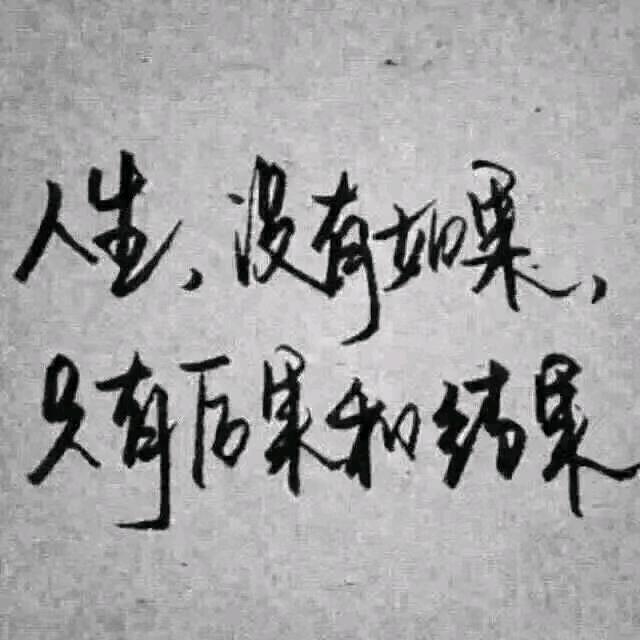 人生，没有如果，
只有后果和结果